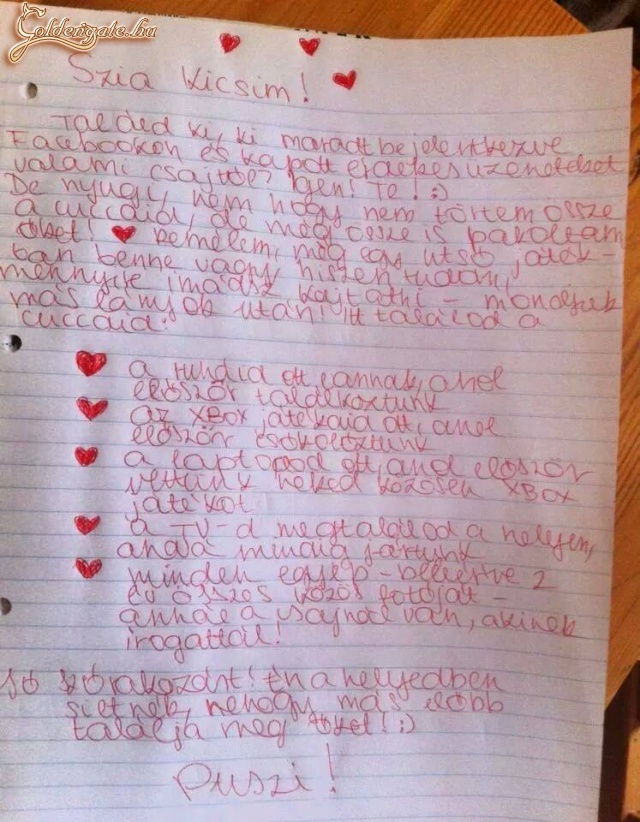 Goldengate.hu
Szia Kicsim!
Találd ki, ki maradt bejelentkezve
Facebookon és kapott érdekes üzeneteket
valami csajtól? Igen! Te! :)
De nyugi, nem hogy nem törtem össze
a cuccaid, de még össze is pakoltam
őket! Remélem, még egy utsó játék-
ban benne vagy, hiszen tudom,
mennyire imádsz kajtatni - mondjuk
más lányok után! Itt találod a
cuccaid:
a ruháid ott vannak, ahol
először találkoztunk
az XBOX játékaid ott, ahol
először csókolóztunk
a laptopod ott, ahol először
vettünk neked közösen XBOX
játékot
a TV-d megtalálod a helyen,
ahová mindig jártunk
minden egyéb - beleértve 2
év összes közös fotóját -
annál a csajnál van, akinek
irogattál!
Jó szórakozást! Én a helyedben
sietnék, nehogy más előbb
találja meg őket! ;)
Puszi!